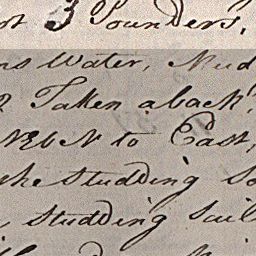 3 Pounders,
ns Water, Mud
Taken aback,
NEbN to East,
the Studding Sa
Studding Sail